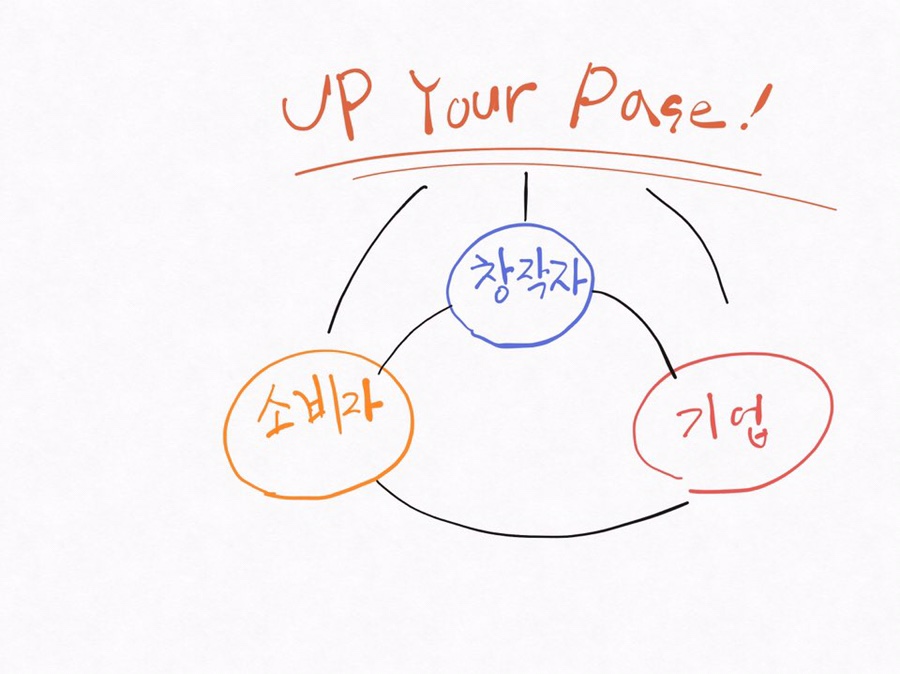 UP Your Page!
창작자
소비자
기업